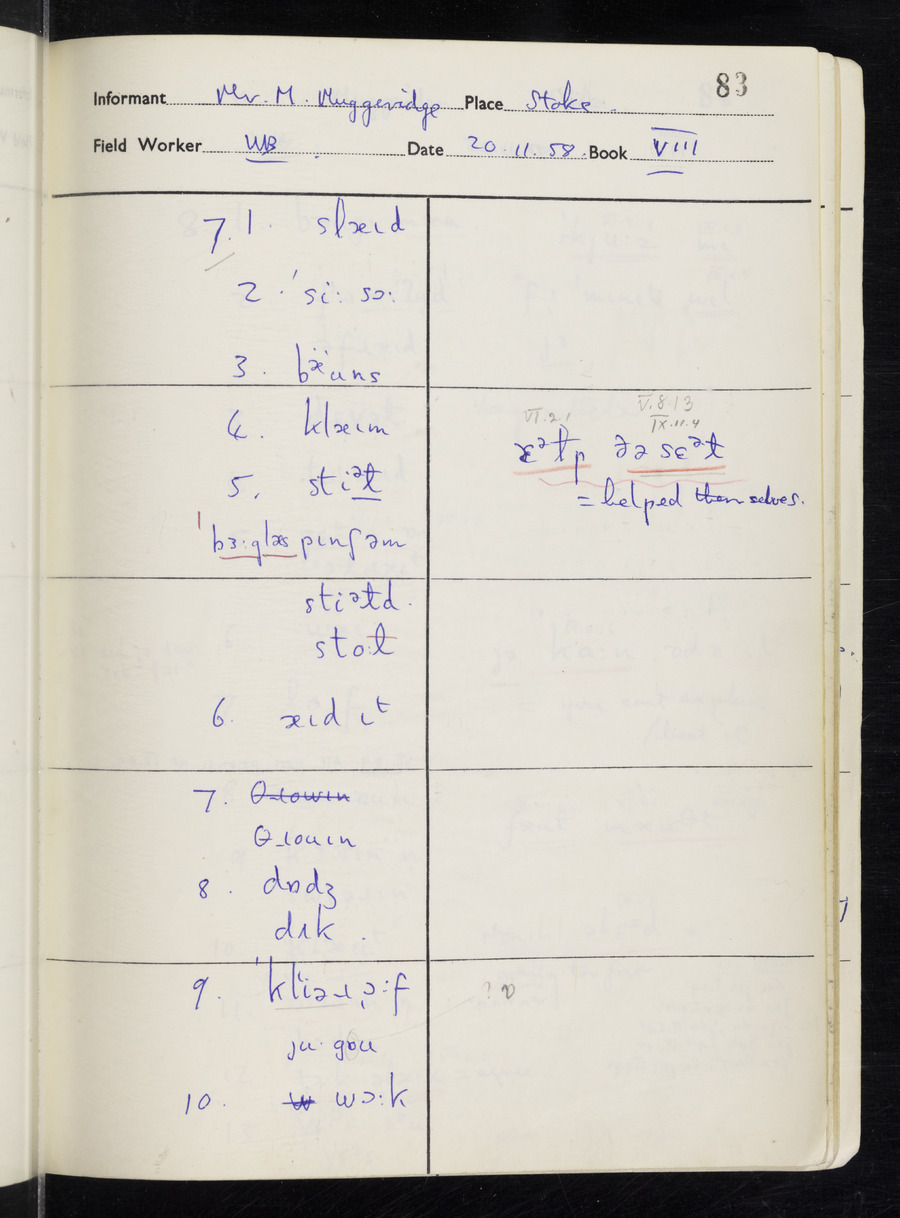 83
Informant Mr. M. Muggeridge Place Stoke
Field Worker WB Date 20.11.58. Book VIII
7.1. slæɪd
2. ˈsiː sɔː
3. bæ̈uns
4. klæɪm
VI.2.1 V.8.13
IX.11.4
ɛᵊɫp ðə sɛᵊɫ
= helped themselves.
5. stiᵊɫ
ˈbɜːglæs pɪnʃ əm
stiᵊɫd
stoːɫ
6. æɪd ɪt
7. θɹowɪn
θɹouɪn
8. dɒdʒ
dʌk
9. ˈklïəɹ ˌɔːf
? ɒ
ju gou
10. w wɔːk